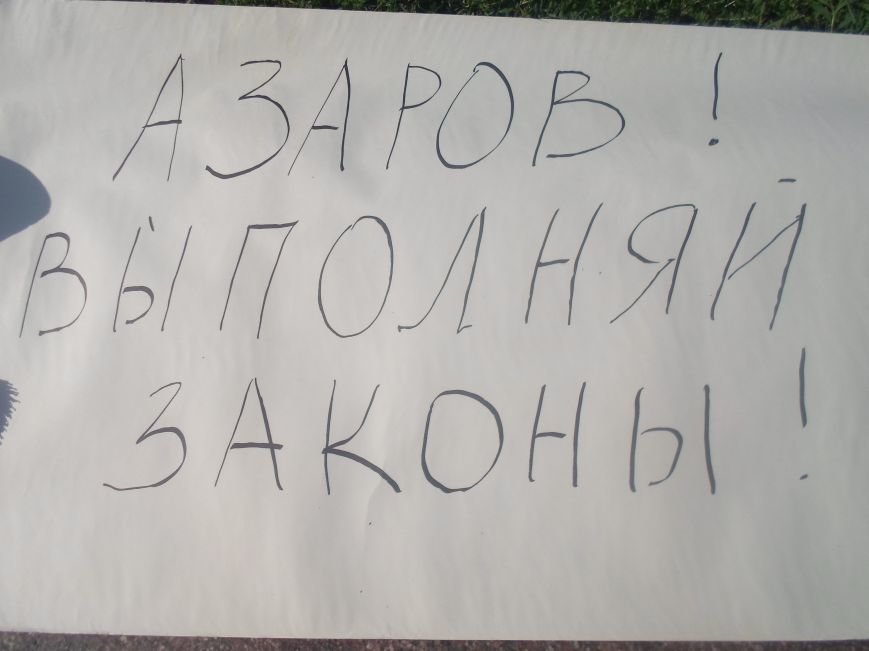 АЗАРОВ !
ВЫПОЛНЯЙ
ЗАКОНЫ !